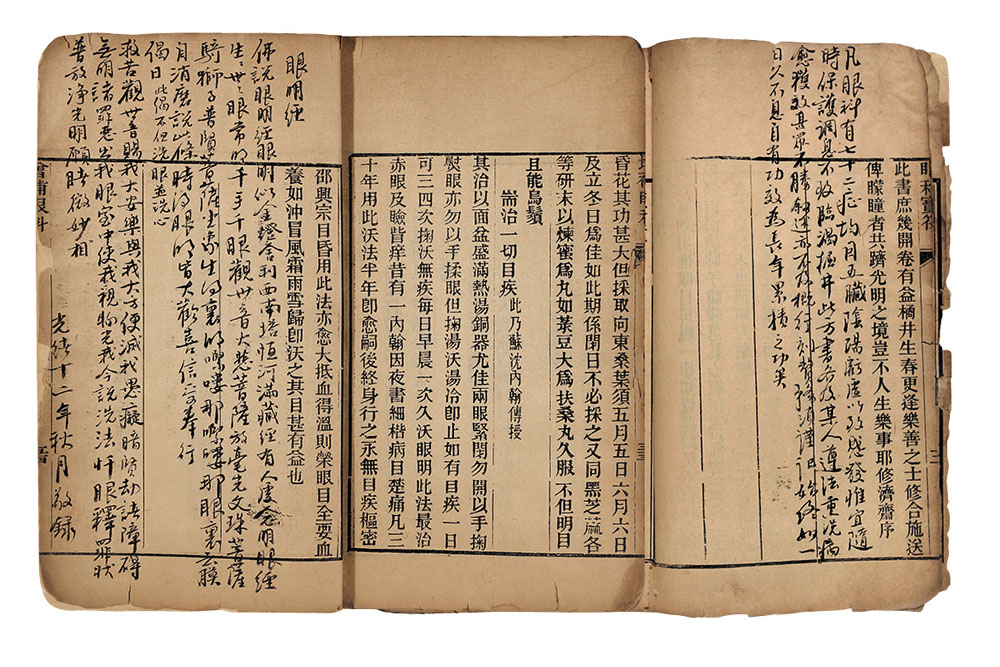 此書庶幾開卷有益橘井生春更逢樂善之士修合施送
俾矇瞳者共躋光明之境豈不人生樂事耶修濟齋序
凡眼科有七十二症均因五臟陰陽虧虛以致感發惟宜隨
時保護調息不收臨渴掘井此方書者及某人遵法重洗病
愈獲效甚眾不勝餘述
日久不息自有功效為善年累積之功矣
昏花其功甚大但採取向東桑葉須五月五日六月六日
及立冬日爲佳如此期係閉日不必採之又同黑芝蔴各
等研末以煉蜜爲丸如菉豆大爲扶桑丸久服不但明目
且能烏鬚
耑治一切目疾 此乃蘇沈內翰傳授
其治以面盆盛滿熱湯銅器尤佳兩眼緊閉勿開以手掬
熨眼亦勿以手揉眼但掬湯沃湯冷卽止如有目疾一日
可三四次掬沃無疾每日早晨一次久沃眼明此法最治
赤眼及瞼眥痒昔有一內翰因夜書細楷病目楚痛凡三
十年用此沃法半年卽愈嗣後終身行之永無目疾樞密
邵興宗目昏用此法亦愈大抵血得溫則榮眼目至要血
養如沖冒風霜雨雪歸卽沃之其目甚有益也
眼明經
佛說眼明經眼明似金燈舍利西南塔恒河滿藏經有人虔念明眼經
生世世眼常明千手千眼觀世音大慈菩薩放毫光文殊菩薩
騎獅子普賢菩薩坐象生
自消磨說此條時得眼明皆大歡喜信受奉行
偈曰 此偈不但洗眼並洗心
救苦觀世音賜我大安樂與我大方便滅我愚癡暗賢劫諸障碍
無明諸罪惡出我眼家中使我視物光我今說洗法懺眼釋罪狀
普放淨光明願睹微妙相
光緒十二年秋月敬録